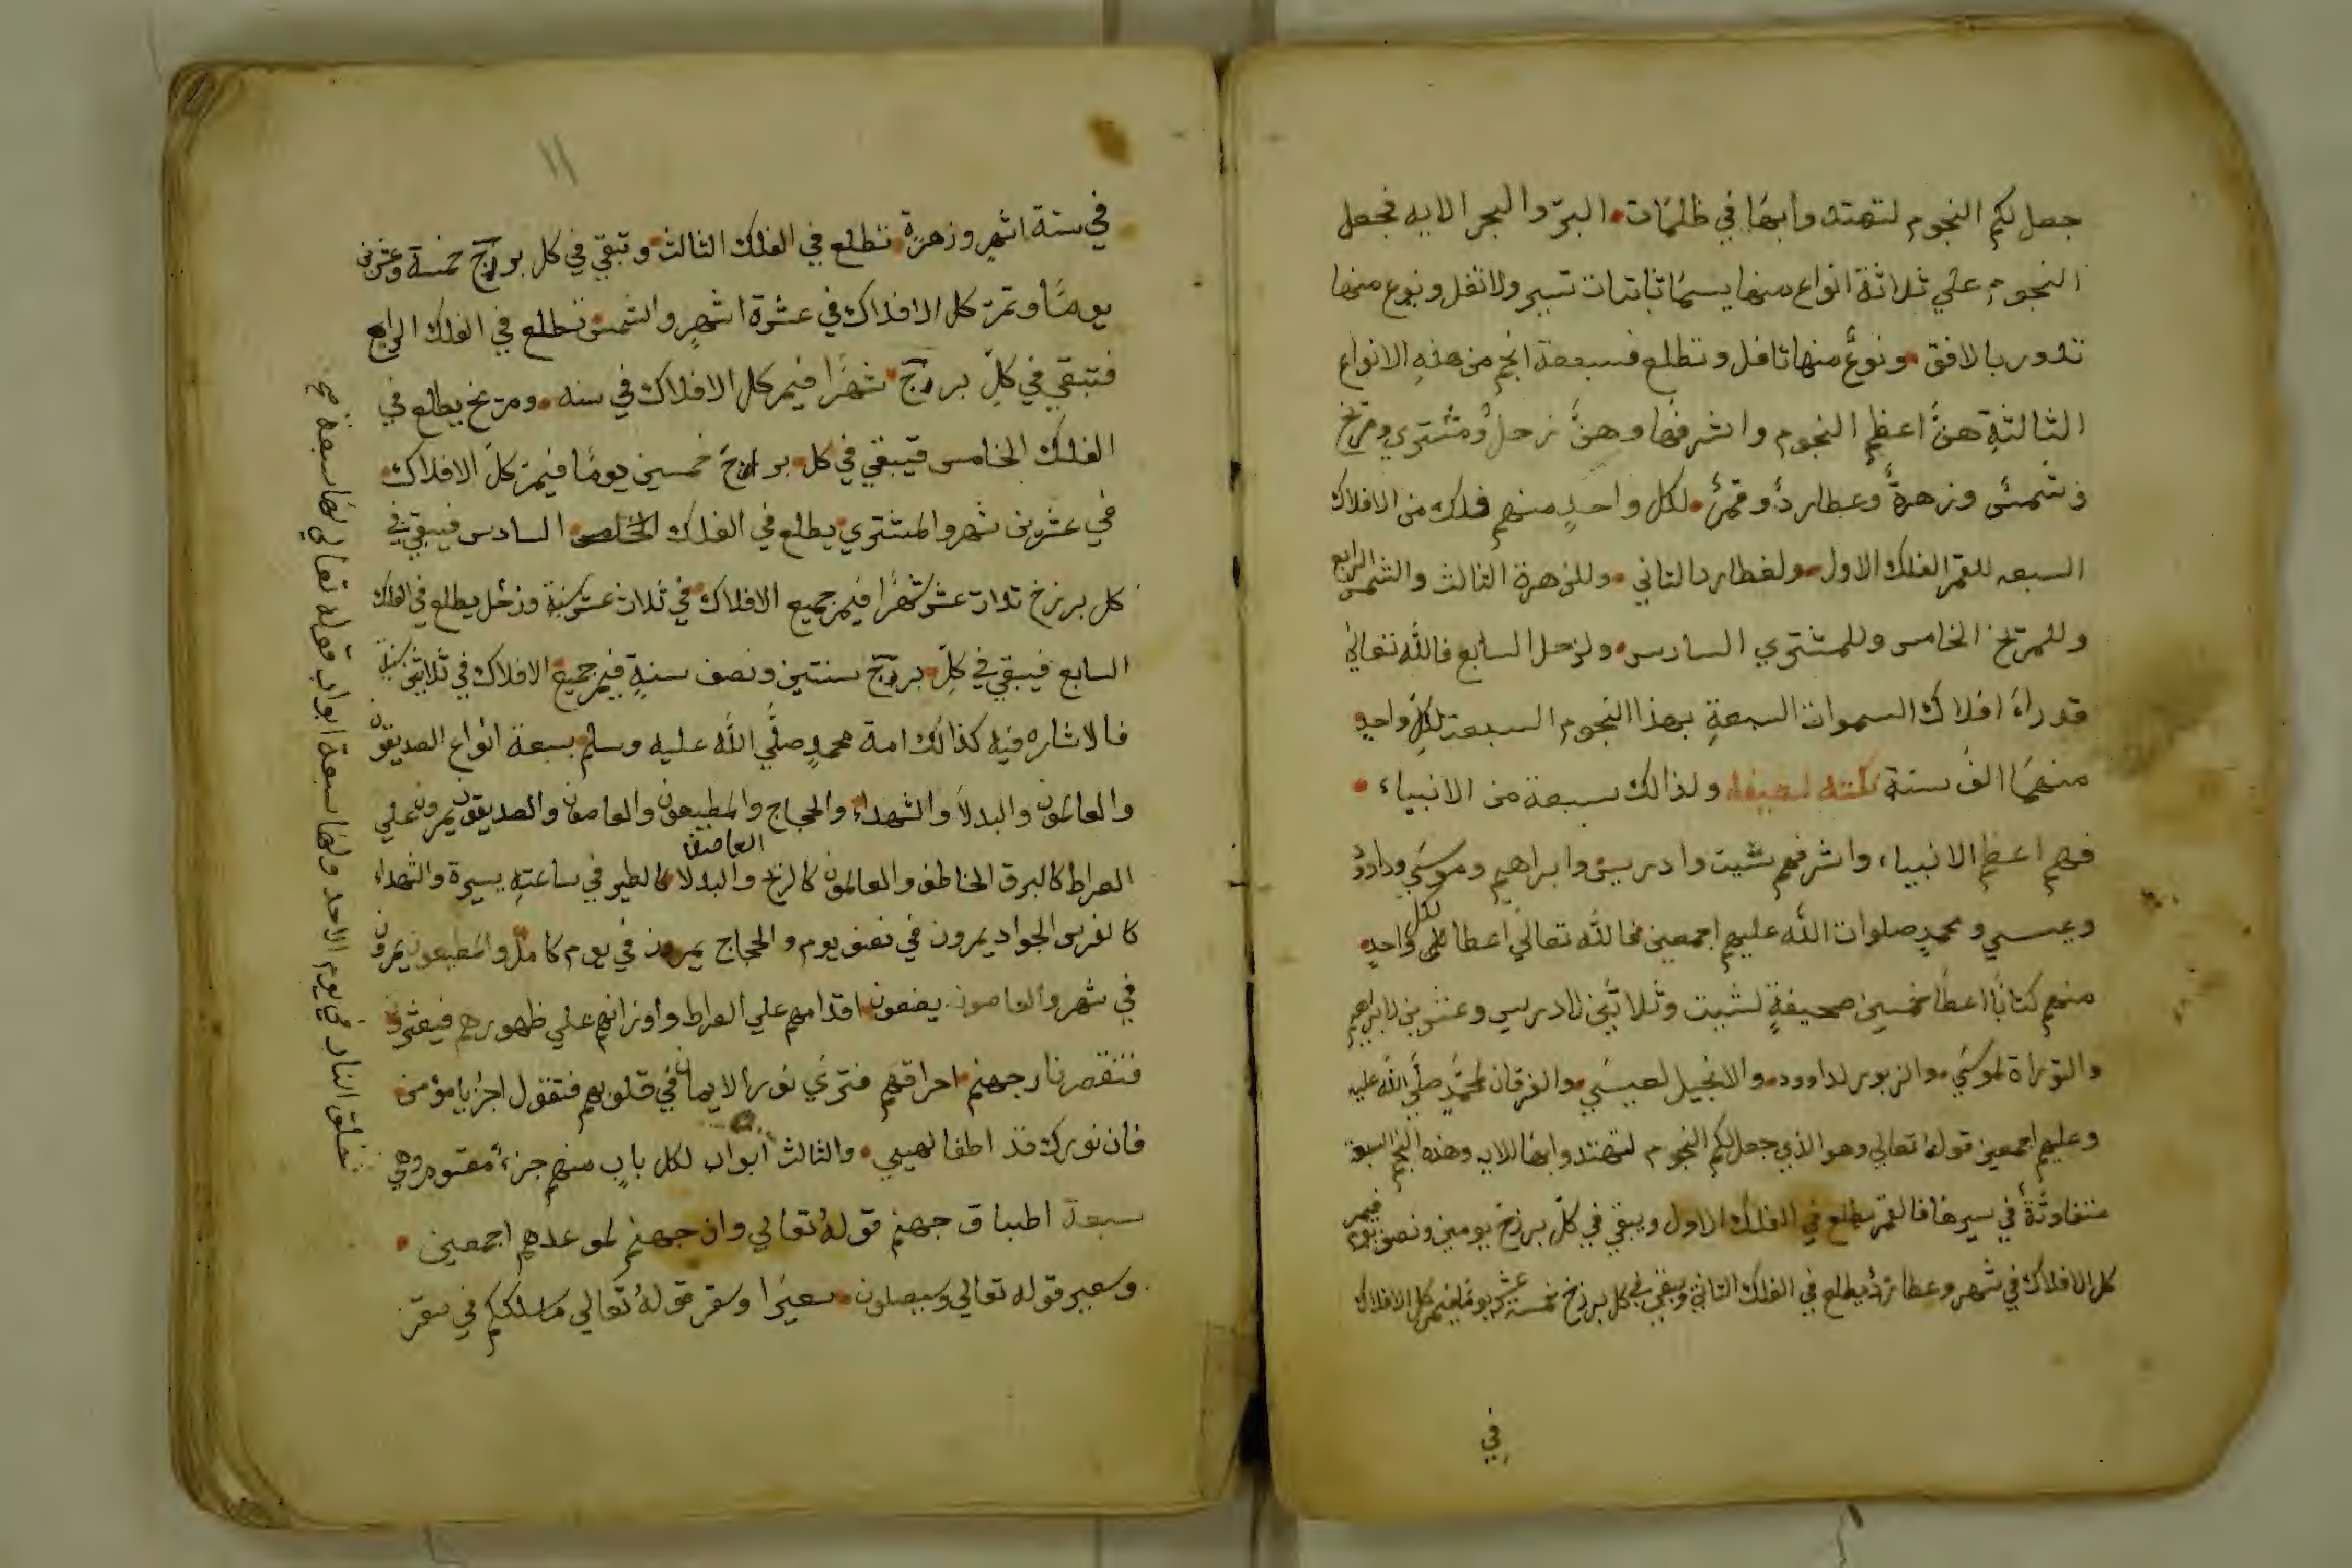 جعل لكم النجوم لتهتدوا بها في ظلمات البرّ والبحر الايه فجعل
النجوم علي ثلاثة انواع منها يسمّا ثابتات تسير ولا تفل ونوع منها
تدور بالافق ونوعٌ منها تافل وتطلع فسبعة انجم من هذه الانواع
الثالثةِ هنَّ اعظم النجوم واشرفها وهنَّ زحلٌ ومشتري ومرّيخ
وشمسٌ وزهرةٌ وعطاردٌ وقمرٌ لكل واحدٍ منهم فلك من الافلاك
السبعه للقمر الفلك الاول ولعطارد الثاني وللزهرة الثالث والشمس الرابع
وللمرّيخ الخامس وللمشتري السادس ولزحل السابع فالله تعالي
قد راه افلاك السموات السبعةِ بهذا النجوم السبعة لكلِّ واحدٍ
منهمَا الفُ سنة ولذالك سبعة من الانبياء
فهم اعظم الانبياء واشرفهم شيت وادريس وابراهيم وموسي وداوودُ
وعيسي ومحمدٍ صلوات الله عليهم اجمعين فالله تعالي اعطا لكل واحدٍ
منهم كتابًا اعطا خمسين صحيفةٍ لشيت وثلاثين لادريس وعشرين لابراهيم
والتوراة لموسَي والزبور لداوود والانجيل لعيسَي والفرقان لمحمّدٍ صلَّي الله عليه
وعليهم اجمعين قولهُ تعالي وهو الذي جعل لكم النجوم لتهتدوا بها للايه وهذه النجم السبعة
متفاوتَةٌ في سيرها فالقمر يطلع في الفلك الاول ويبقي في كلّ برزخ يومين ونصف يوم فيمر
كل الافلاك في شهر وعطاردُ يطلع في الفلك الثاني ويبقي في كل برزخ خمسة عشر يومًا فيمر كل الافلاك
في
١١
في ستة اشهرٍ وزهرة تطلع في الفلك الثالث وتبقي في كل بورج خمسة وعشرين
يومًا وتمرّ كل الافلاك في عشرة اشهرٍ والشمس تطلع في الفلك الرابع
فتبقي في كلِّ برج شهرًا فيمر كل الافلاك في سنه ومريخ يطلع في
الفلك الخامس فيبقي في كل برج خمسين يومًا فيمرّ كلَّ الافلاك
في عشرين شهر والمشتري يطلع في الفلك السادس فيبقي في
كل برزخ ثلاث عشر شهرًا فيمر جميع الافلاك في ثلاث عشر سنة وزحل يطلع في الفلك
السابع فيبقي في كلِّ برج سنتين ونصف سنةٍ فيمر جميع الافلاك في ثلاثين سنة
فالاشاره فيه كذالك امة محمدٍ صلَّي الله عليه وسلم بسبعة انواع الصديقون
والعالمون والبدلاَ والشهداء والحجاج والمطيعون والعاصون والصديقون يمرون علي
الصراط كالبرق الخاطف والعالمون كالريح العاصف والبدلا كالطير في ساعتهِ يسيرة والشهداء
كالفرس الجواد يمرون في نصف يوم والحجاج يمرون في يوم كاملٍ والمطيعون يمرون
في شهر والعاصون يضعون اقدامهم علي الصراط واوزانهم علي ظهورهم فيعثرون
فتقصر نار جهنم احراقهم فترَي نور الايمان في قلوبهم فتقول اجز يا مؤمن
فان نورك قد اطفا لهيبي والثالث ابواب لكل بابٍ منهم جزءٌ مقسوم وهي
سبعة اطباق جهنم قولهُ تعالي وان جهنم لموعدهم اجمعين
وسعير قوله تعالي وسيصلون سعيرًا وسقر قولهُ تعالي ماسلككم في سقرَ
خلق النار في يوم الاحد ولها سبعة ابواب قوله تعالي لها سبعة